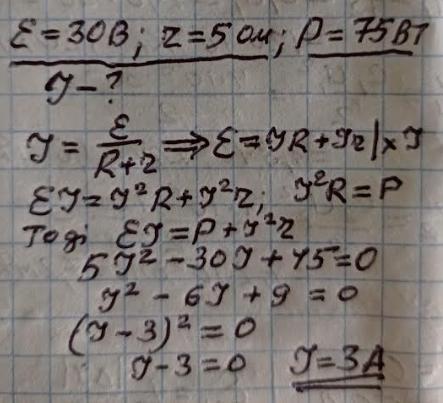 ℰ = 30В; r = 5 Ом; P = 75Вт
I - ?
I = ℰ/(R+r) ⇒ ℰ = IR + Ir | × I
ℰI = I²R + I²r; I²R = P
Тоді ℰI = P + I²r
5I² - 30I + 45 = 0
I² - 6I + 9 = 0
(I - 3)² = 0
I - 3 = 0 I = 3А